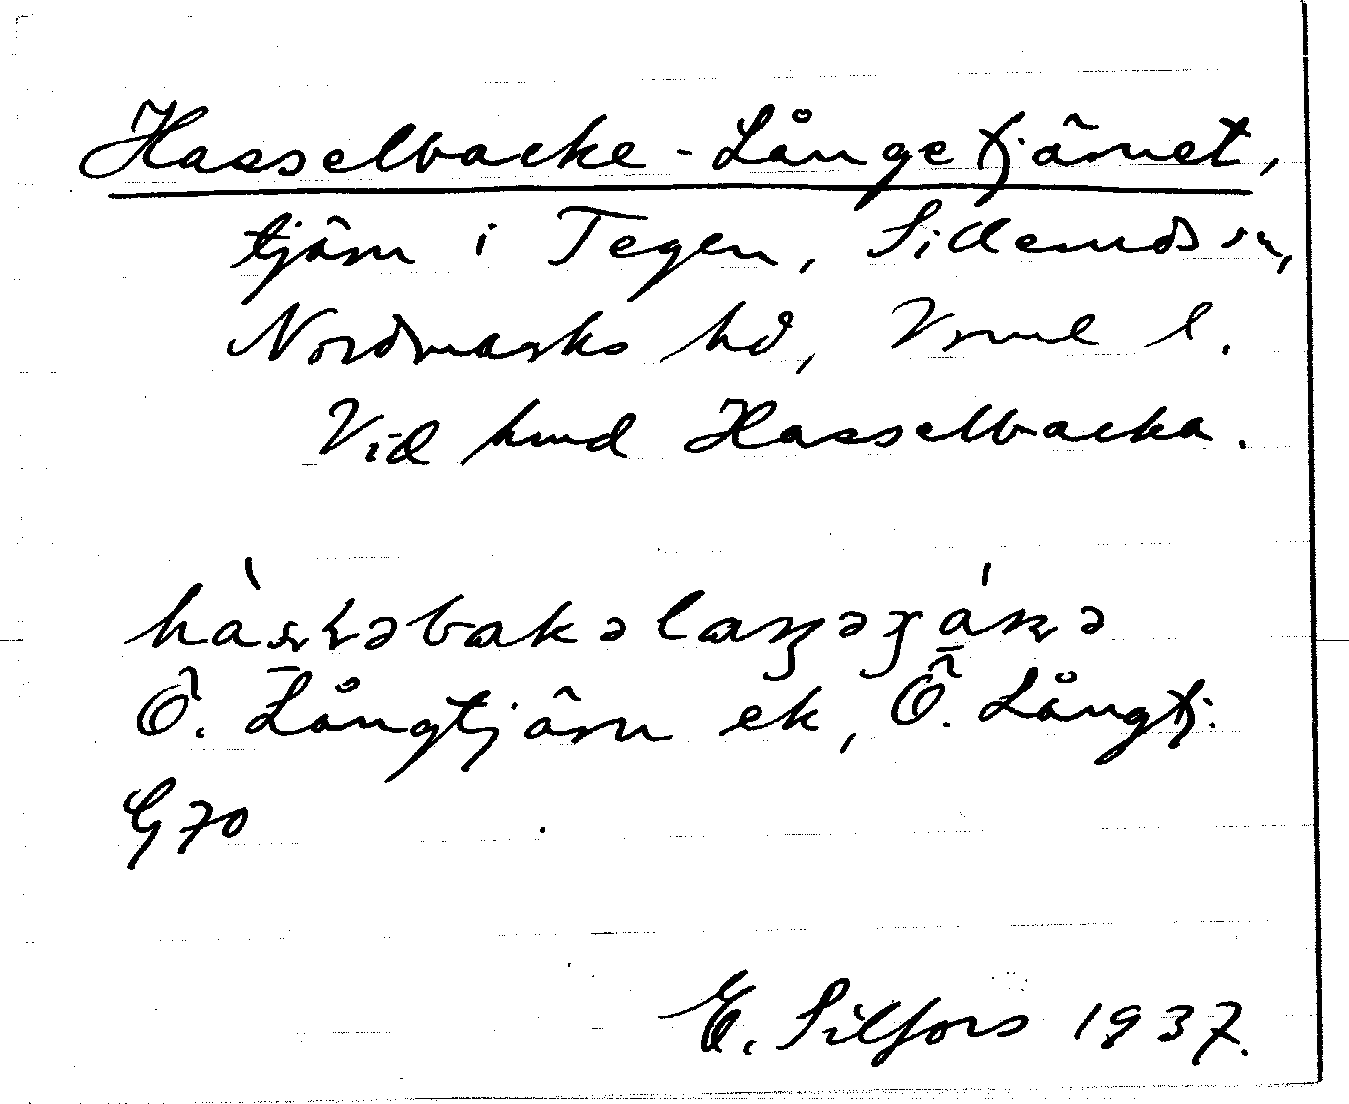 Hasselbacke-Långetjärnet,
tjärn i Tegen, Silleruds sn,
Nordmarks hd, Vrml l.
Vid hmd Hasselbacka.
Ö. Långtjärn ek, Ö. Långtj.
G 70
E. Silfors 1937.